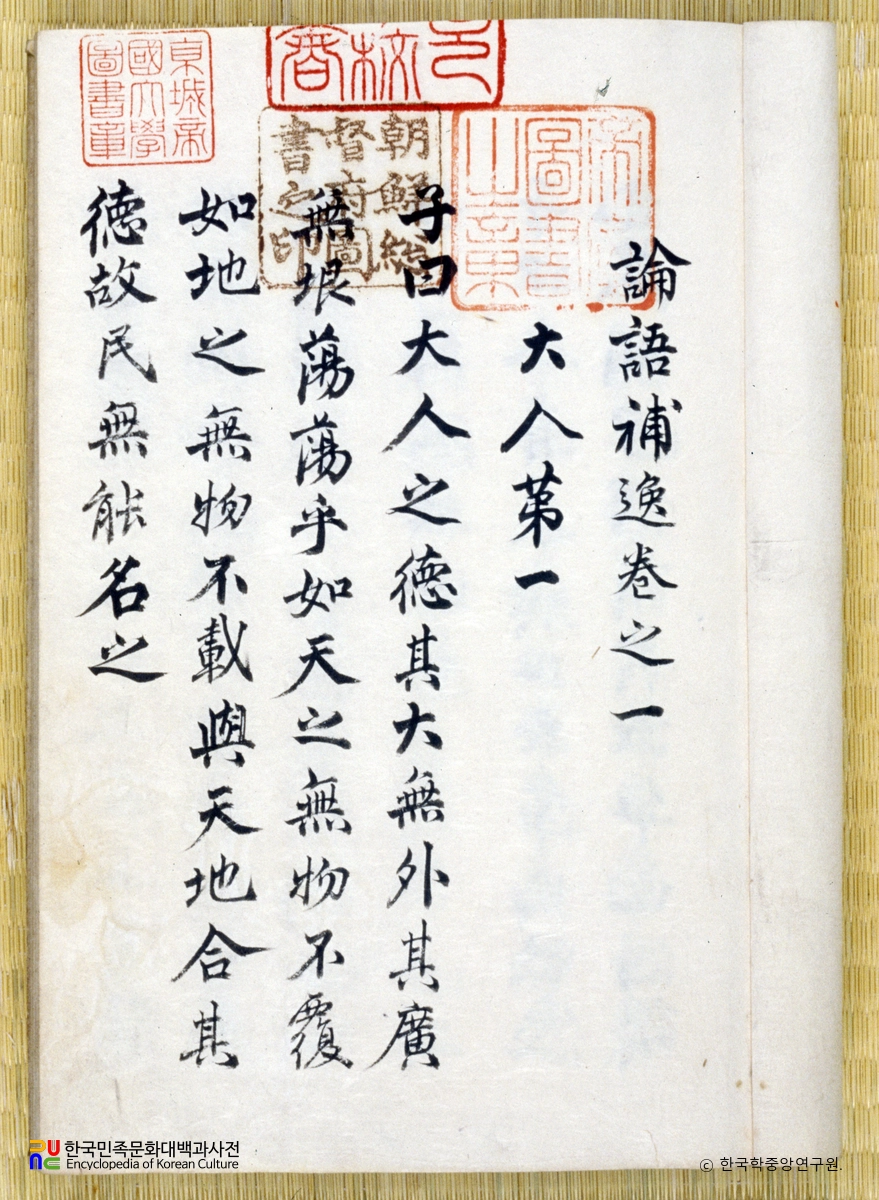 論語補逸卷之一
大人第一
子曰大人之德其大無外其廣
無垠蕩蕩乎如天之無物不覆
如地之無物不載與天地合其
德故民無能名之
京城帝
國大學
圖書章
朝鮮總
督府圖
書之印
圖書
한국민족문화대백과사전
Encyclopedia of Korean Culture
© 한국학중앙연구원.